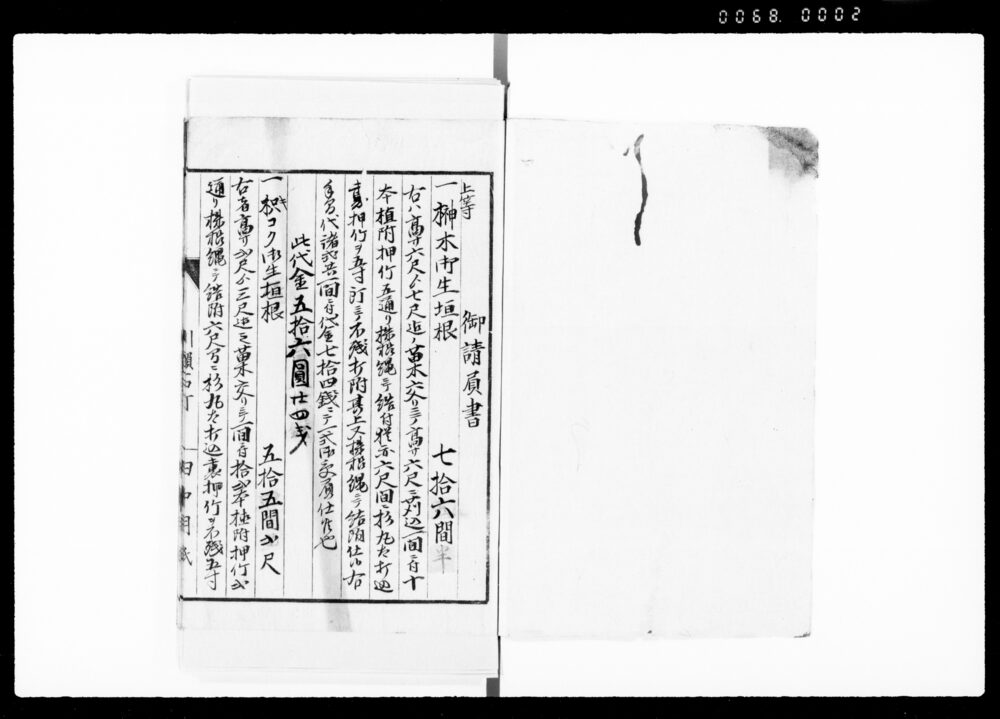 0068. 0002
御請負書
上等
一 榊木御生垣根 七拾六間半
右ハ高サ六尺ゟ七尺迄ノ苗木交リニテ高サ六尺ニ苅込一間ニ付十
本植附押竹五通リ棕梠縄ニテ結付 六尺間ニ杉丸太打込
裏押竹ヲ五寸 ニ不残打附其上又棕梠縄ニテ結附仕候右
代諸式共一間ニ付代金七拾四銭ニテ 御受負仕候也
此代金五拾六圓廿四戋
一 枳コク御生垣根 五拾五間弐尺
右者高サ弐尺ゟ三尺迄之苗木交リニテ一間ニ付拾弐本植附押竹弐
通リ棕梠縄ニテ結附六尺間ニ杉丸太打込裏押竹ヲ不残五寸